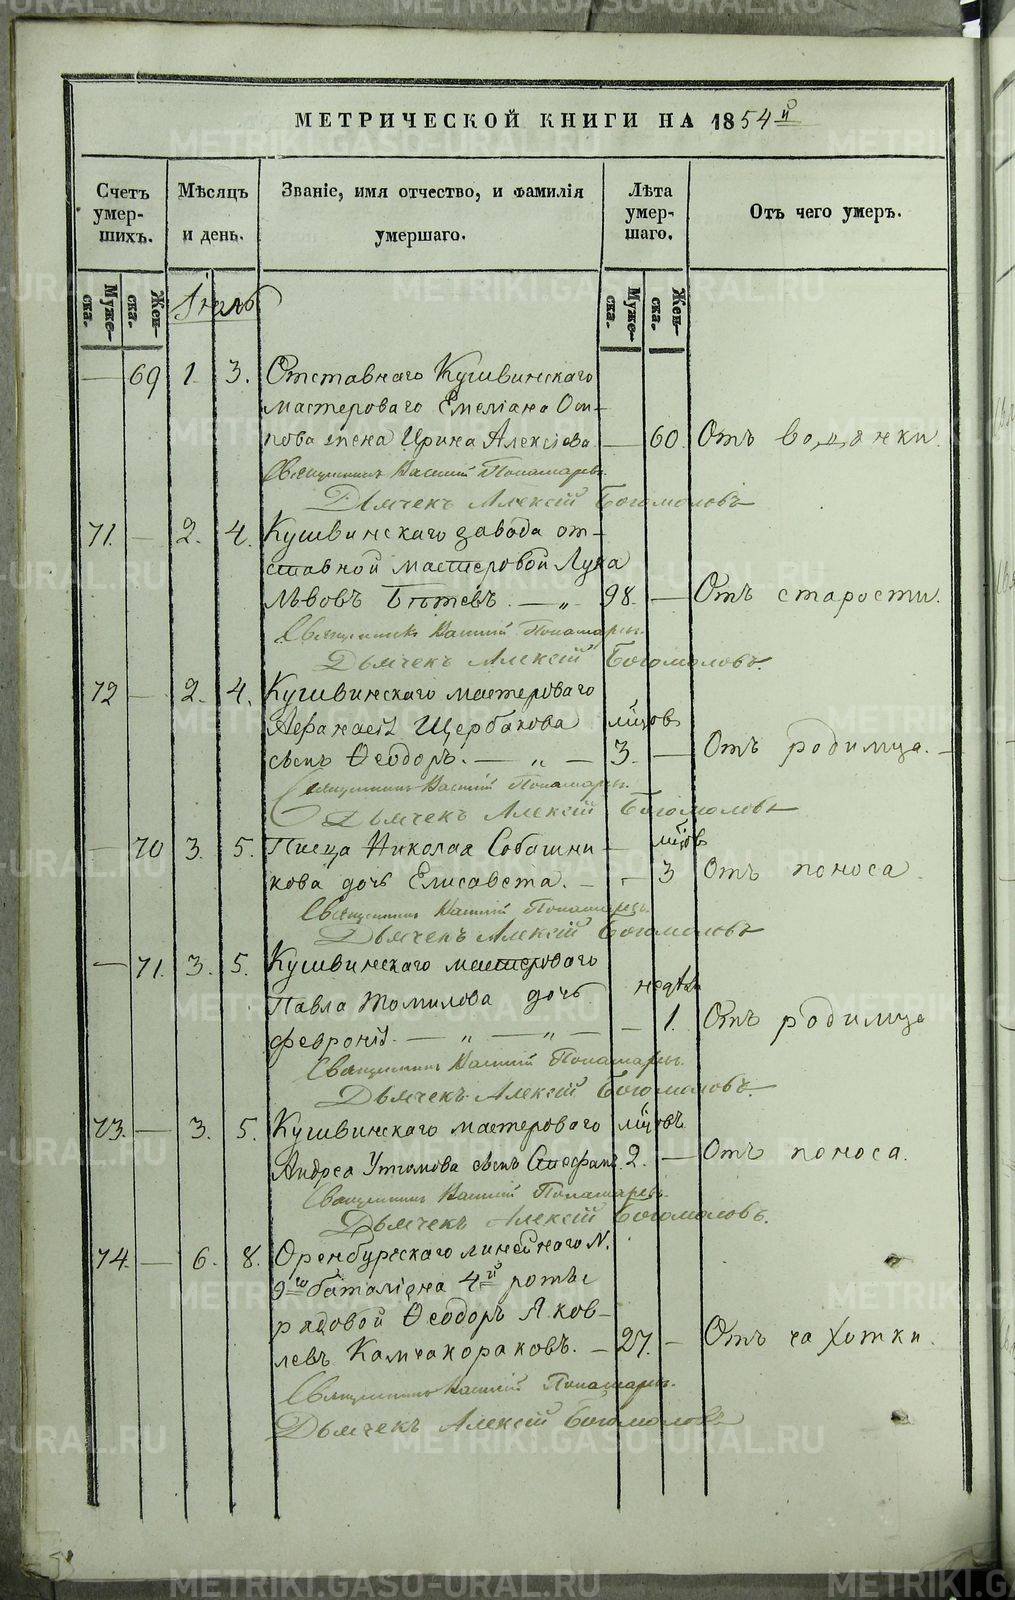 МЕТРИЧЕСКОЙ КНИГИ НА 1854й
Счетъ умер-шихъ.
Мѣсяцъ и день.
Званіе, имя отчество, и фамилія умершаго.
Лѣта умер-шаго.
Отъ чего умеръ.
Муже-ска.
Жен-ска.
Муже-ска.
Жен-ска.
— 69 1. 3. Отставнаго Кушвинскаго
мастероваго Емеліана Оси-
пова жена Ирина Алексіева — 60. Отъ водянки.
Священникъ Василій Пономаревъ.
Дьячекъ Алексій Богомоловъ
71. — 2. 4. Кушвинскаго завода от-
ставной мастеровой Лука
Львовъ — „ 98. — Отъ старости.
Священникъ Василій Пономаревъ.
Дьячекъ Алексій Богомоловъ.
72 — 2. 4. Кушвинскаго мастероваго
Афанасія Щербакова мѣцовъ
сынъ Ѳеодоръ. — „ — 3. — Отъ родимца. —
Священникъ Василій Пономаревъ.
Дьячекъ Алексій Богомоловъ
— 70 3. 5. Писца Николая Собашни- — мѣцов
кова дочь Елисавета. — - 3 Отъ поноса.
Священникъ Василій Пономаревъ.
Дьячекъ Алексій Богомоловъ
— 71. 3. 5. Кушвинскаго мастероваго
Павла Томилова дочь недѣль
Февронія. — „ — „ — — 1. Отъ родимца
Священникъ Василій Пономаревъ.
Дьячекъ Алексій Богомоловъ.
73. — 3. 5. Кушвинскаго мастероваго мѣцовъ
Андрея Утюмова сынъ Стефанъ. 2. — Отъ поноса.
Священникъ Василій Пономаревъ.
Дьячекъ Алексій Богомоловъ.
74. — 6. 8. Оренбургскаго линейнаго N.
9го баталіона 4й роты
рядовой Ѳеодоръ Яков-
левъ Камчакораковъ. — 27. — Отъ чахотки.
Священникъ Василій Пономаревъ.
Дьячекъ Алексій Богомоловъ
METRIKI.GASO-URAL.RU